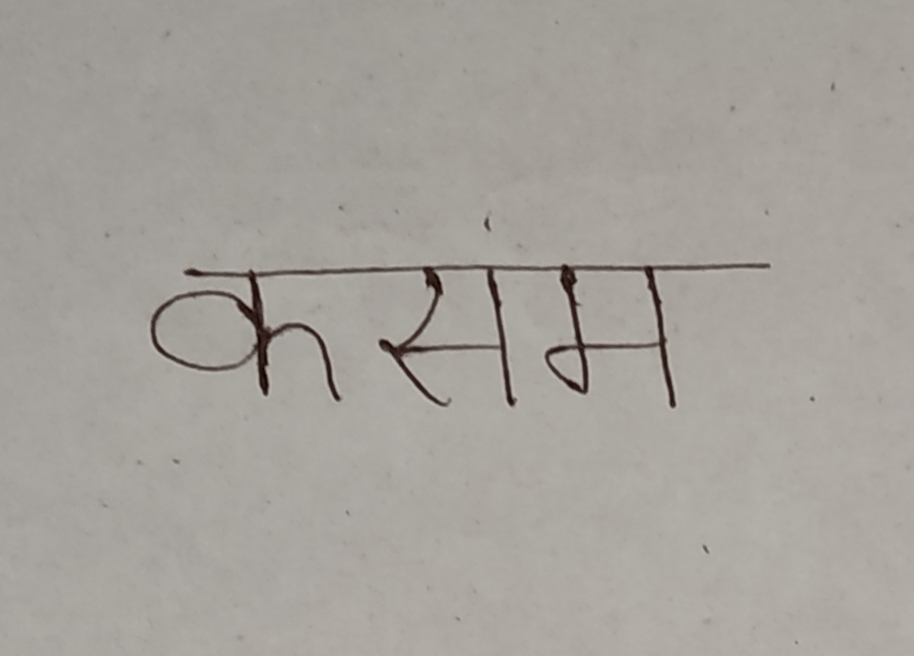 कसम